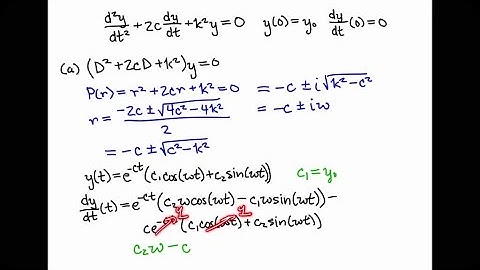 d²y/dt² + 2c dy/dt + k²y = 0   y(0) = y₀   dy/dt (0) = 0
(a) (D² + 2cD + k²)y = 0
P(r) = r² + 2cr + k² = 0   = -c ± i√(k² - c²)
r = (-2c ± √(4c² - 4k²))/2   = -c ± iω
= -c ± √(c² - k²)
y(t) = e^(-ct) (c₁cos(ωt) + c₂ sin(ωt))   c₁ = y₀
dy/dt (t) = e^(-ct) (c₂ωcos(ωt) - c₁ωsin(ωt)) -
ce^(-ct) (c₁cos(ωt) + c₂ sin(ωt))
1 1
c₂ω - c